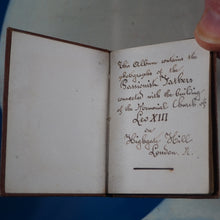 This Album contains the
photographs of the
Passionist Fathers
connected with the building
of the Memorial Church of
Leo XIII
on
Highgate Hill
London. N.